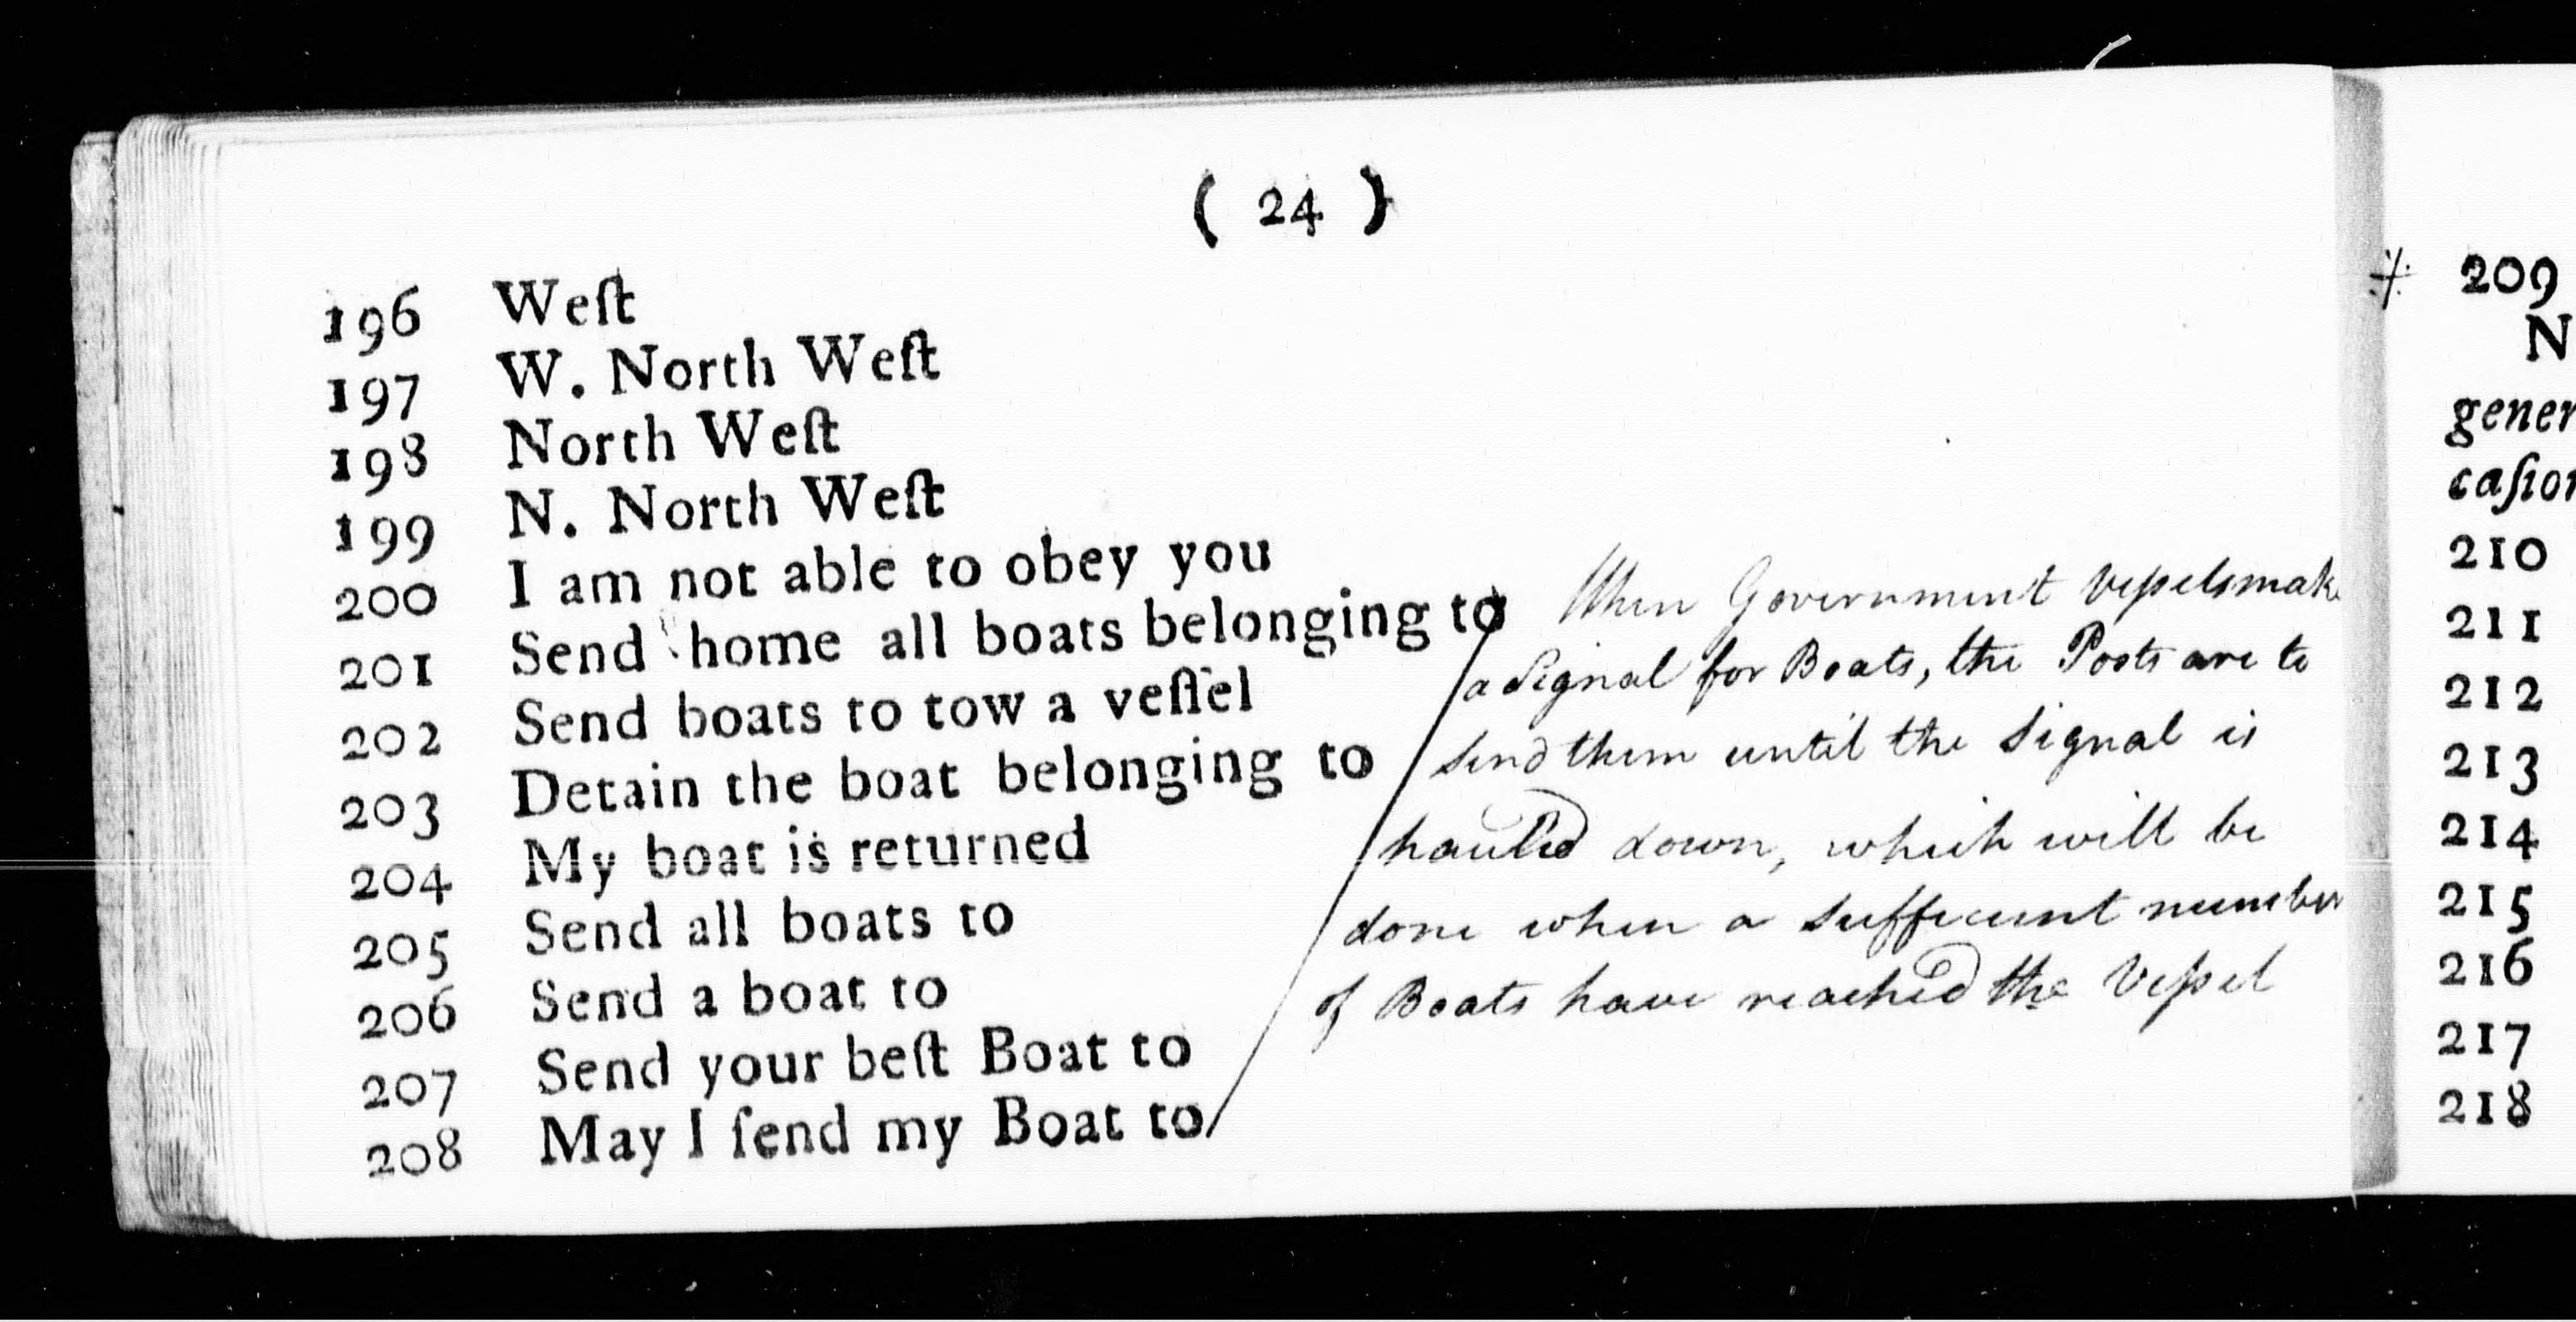 ( 24 )
196 Weſt
197 W. North Weſt
198 North Weſt
199 N. North Weſt
200 I am not able to obey you
201 Send home all boats belonging to
202 Send boats to tow a veſſel
203 Detain the boat belonging to
204 My boat is returned
205 Send all boats to
206 Send a boat to
207 Send your beſt Boat to
208 May I ſend my Boat to
When Government Veſsels make
a Signal for Boats, the Posts are to
send them until the Signal is
hauled down, which will be
done when a sufficient number
of Boats have reached the Veſsel
209
N
gener
caſion
210
211
212
213
214
215
216
217
218